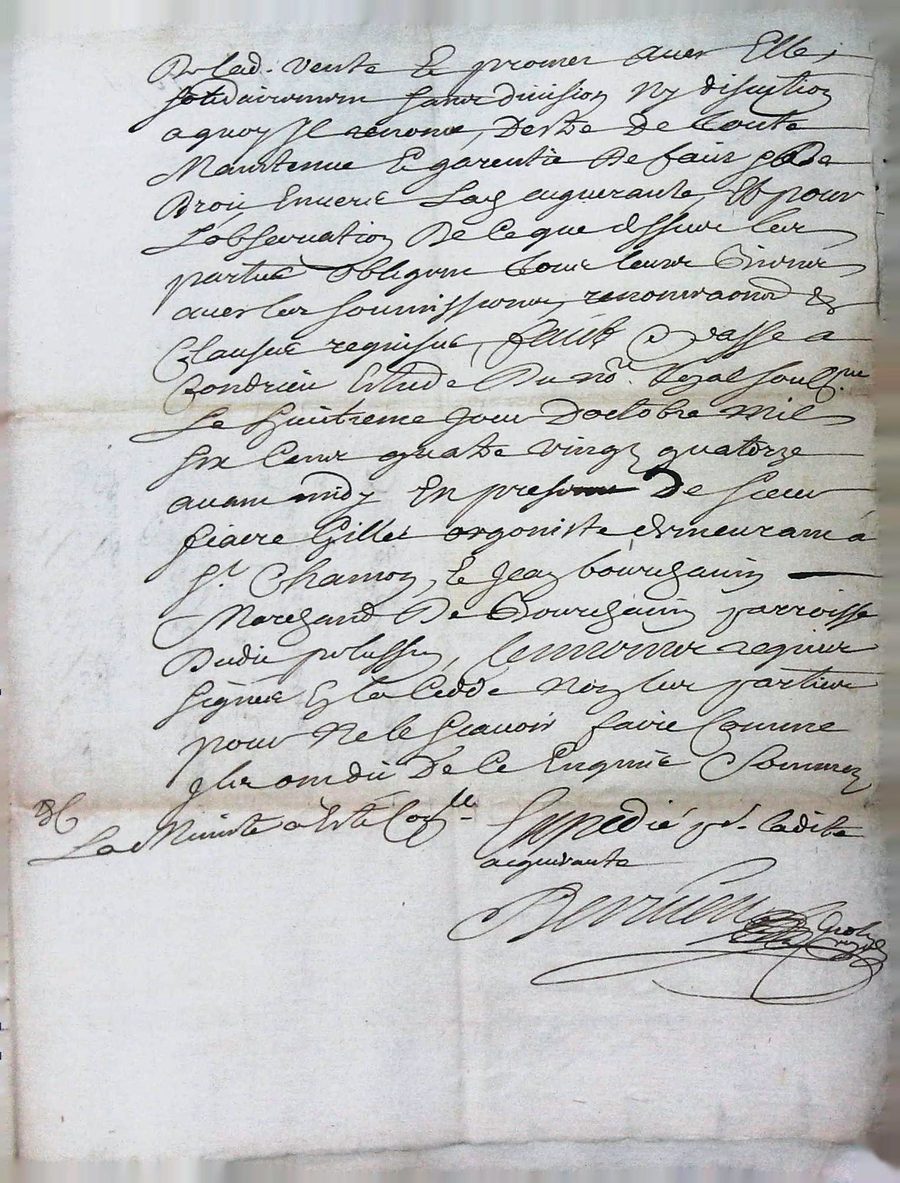 De lad. vente Et promet avec Elle
solidairement sans division Ny discution
a quoy Il renonce, Destre De toute
Maintenue Et garentie De fait Et De
Droit Envers Lad acquerante, Et pour
L'observation De Ce que dessus les
parties obligent tous leurs biens
avec les soumissions, renonciaons Et
Clauses requises, faict Et Passé a
Condrieu Estude Du no.re Royal soubs.ne
Le huitieme jour D'octobre Mil
six Cent quatre vingt quatorze
avant midy En presence De sieur
fiacre Gilles organiste demeurant a
St Chamon, Et Jean bourchanin
Marchand De Bourchanin parroisse
Dudit pelussin,
signés Et la Cedde Non les parties
pour Ne le scavoir faire Comme
Ils ont dit De Ce Enquis Et Sommez
La Minute a Esté Con.lle
Expedié pr. ladite
acquerante